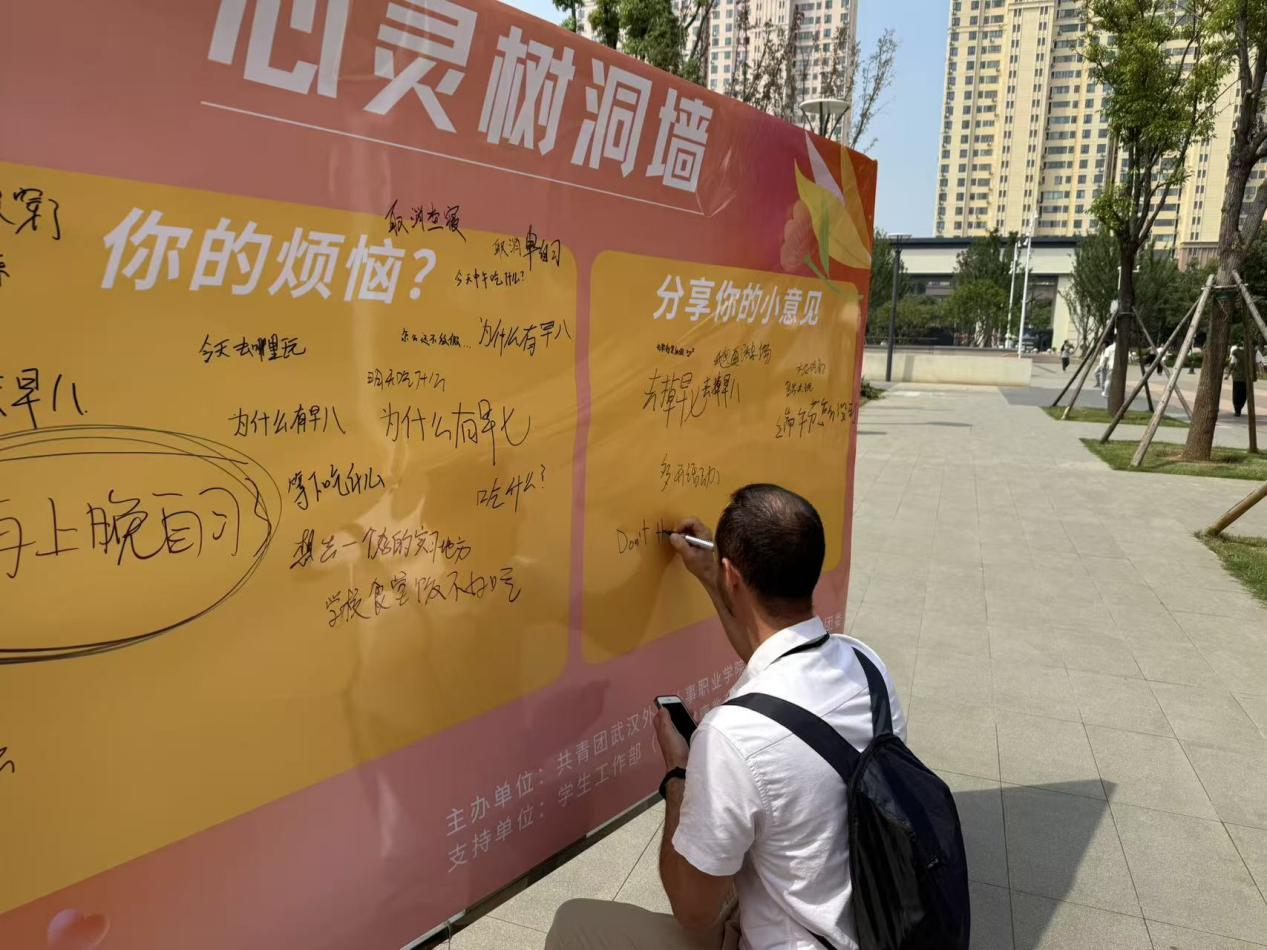 心灵树洞墙
你的烦恼？
取消查寝
取消早自习
今天中午吃什么？
今天去哪里玩
为什么有早八
明天吃什么
为什么有早八
为什么有早七
等下吃什么
吃什么？
想去一个
的实习地方
学校食堂饭不好吃
穿了
早八
上晚自习
分享你的小意见
去掉早七
去掉早八
多开活动
Don't
主办单位：共青团武汉外
事职业学院
团委
支持单位：学生工作部（